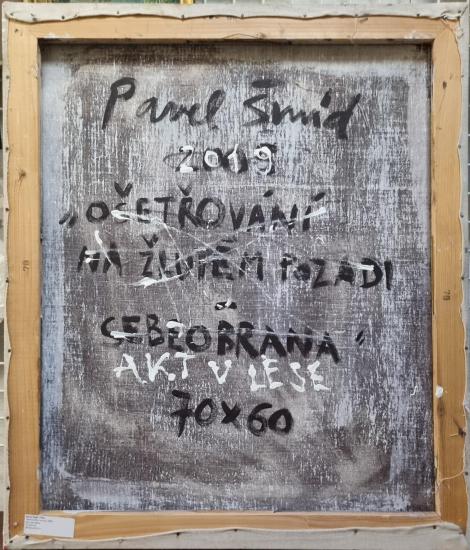 Pavel Šmíd
2009
"OŠETŘOVÁNÍ
NA ŽLUTÉM POZADÍ
SEBEOBRANA"
AKT V LESE
70x60